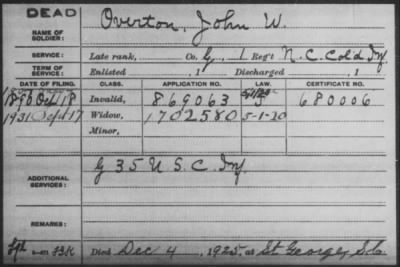 DEAD
NAME OF SOLDIER: Overton, John W.
SERVICE: Late rank, Co. G, 1 Reg't N.C. Col'd Inf
TERM OF SERVICE: Enlisted , 1 Discharged , 1
DATE OF FILING. CLASS. APPLICATION NO. LAW. CERTIFICATE NO.
1890 Oct 18 Invalid, 869063 680006
1931 Sept 17 Widow, 1702580 5-1-20
Minor,
ADDITIONAL SERVICES: G 35 U S. C. Inf.
REMARKS:
Died Dec 4, 1925, at St George, S.C.